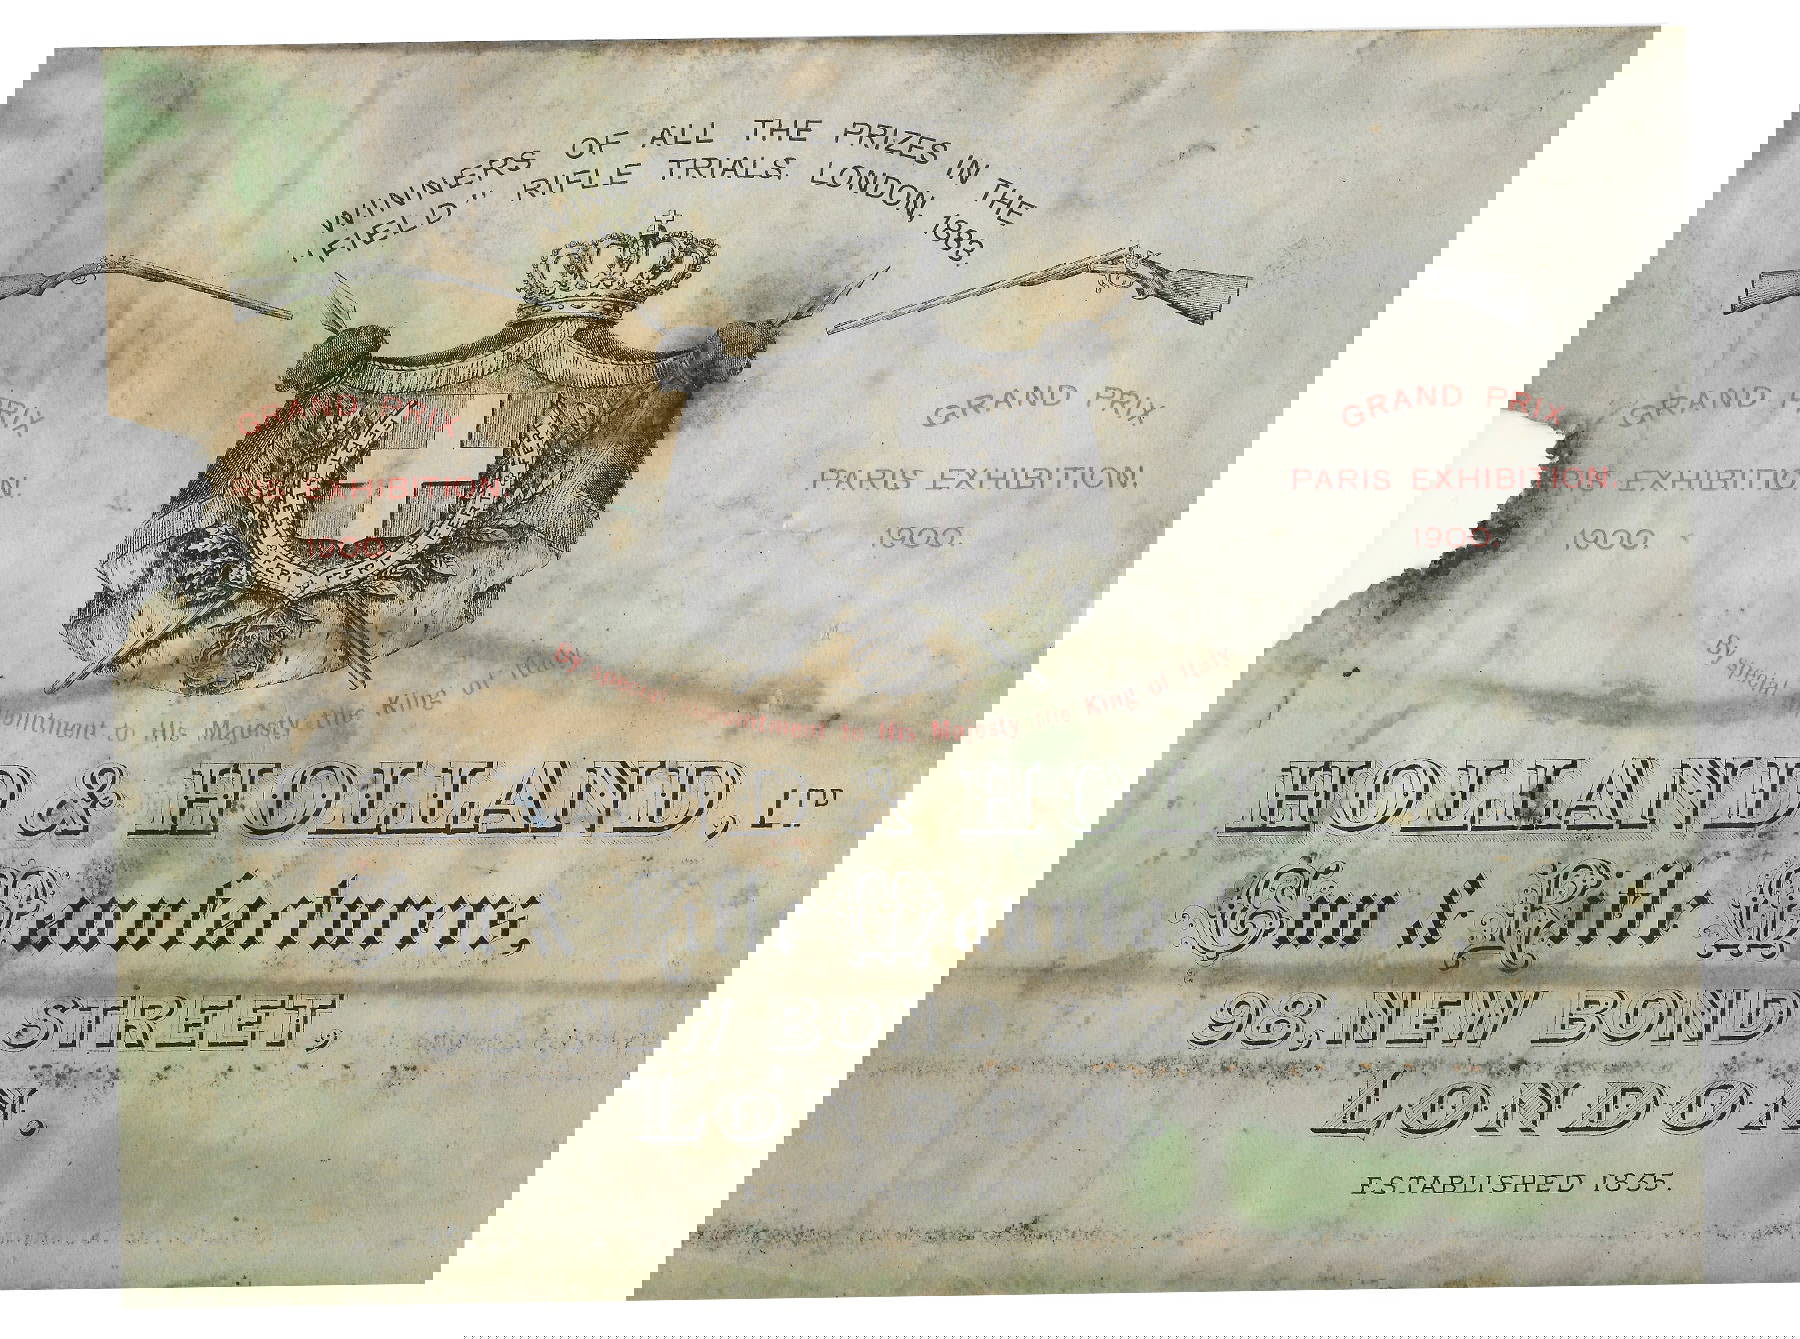 WINNERS OF ALL THE PRIZES IN THE
"FIELD" RIFLE TRIALS, LONDON, 1883.
GRAND PRIX
EXHIBITION.
GRAND PRIX
EXHIBITION
1900
GRAND PRIX
PARIS EXHIBITION.
1900.
GRAND PRIX
PARIS EXHIBITION.
1900.
GRAND PRIX
EXHIBITION.
1900.
to His Majesty the King of Italy
By special appointment to His Majesty the King of Italy
By special
& HOLLAND, HOLLAND, LTD
Manufacturers, Gun & Rifle
STREET, 98, NEW BOND
LONDON.
ESTABLISHED 1835.